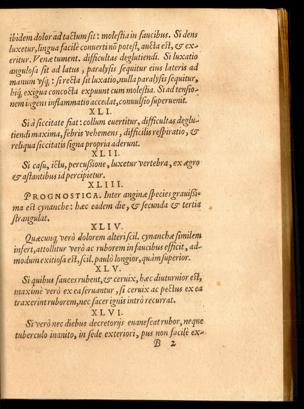 ibidem dolor ad tactum sit: molestia in faucibus. Si dens
luxetur, lingua facilè converti nõ potest, aucta est, & ex-
eritur. Venæ tument. difficultas deglutiendi. Si luxatio
angulosa sit ad latus, paralysis sequitur eius lateris ad
manum usq;: si recta sit luxatio, nulla paralysis sequitur,
hiq; exigua concocta expuunt cum molestia. Si ad tensio-
nem ingens inflammatio accedat, convulsio supervenit.
XLI.
Si à siccitate fiat: collum evertitur, difficultas deglu-
tiendi maxima, febris vehemens, difficilis respiratio, &
reliqua siccitatis signa propria aderunt.
XLII.
Si casu, ictu, percusione, luxetur vertebra, ex ægro
& astantibus id percipietur.
XLIII.
PROGNOSTICA. Inter anginæ species gravissi-
ma est cynanche: hæc eadem die, & secunda & tertia
strangulat.
XLIV.
Quæcunq; verò dolorem alteri scil. cynanchæ similem
infert, attollitur verò ac ruborem in faucibus efficit, ad-
modum exitiosa est, scil. paulò longior, quàm superior.
XLV.
Si quibus fauces rubent, & cervix, hæc diuturnior est,
maximè verò ex ea servantur, si cervix ac pectus ex ea
traxerint ruborem, nec sacer ignis intrò recurrat.
XLVI.
Si verò nec diebus decretorijs evanescat rubor, neque
tuberculo inanito, in sede exteriori, pus non facilè ex-
B 2